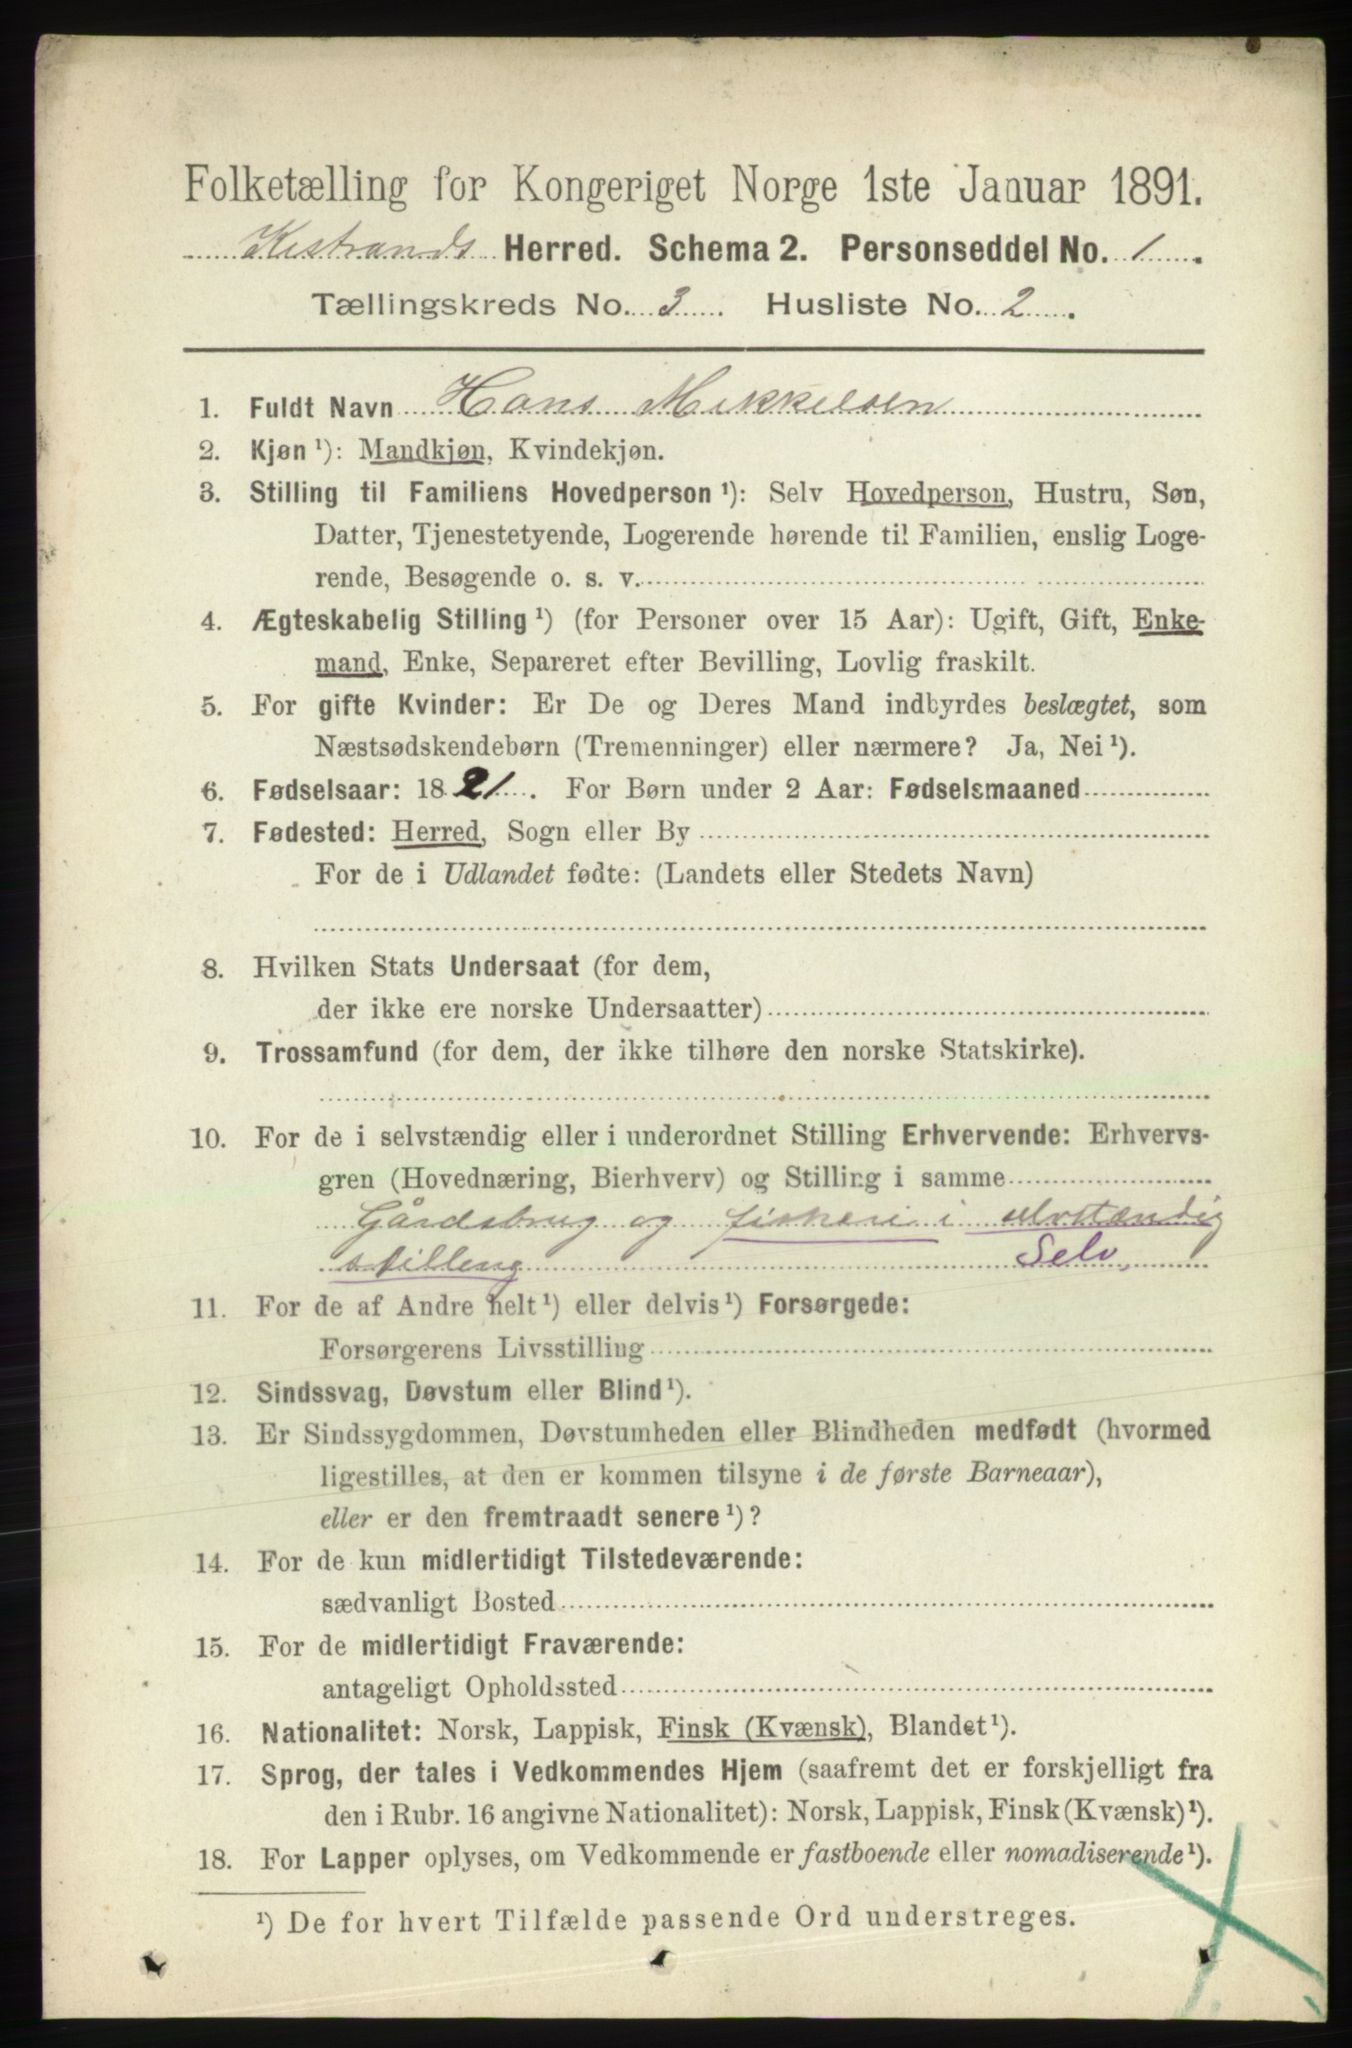 Folketælling for Kongeriget Norge 1ste Januar 1891.
Kistrands Herred. Schema 2. Personseddel No. 1.
Tællingskreds No. 3 Husliste No. 2.
1. Fuldt Navn Hans Mikkelsen
2. Kjøn ¹): Mandkjøn, Kvindekjøn.
3. Stilling til Familiens Hovedperson ¹): Selv Hovedperson, Hustru, Søn,
Datter, Tjenestetyende, Logerende hørende til Familien, enslig Loge-
rende, Besøgende o. s. v.
4. Ægteskabelig Stilling ¹) (for Personer over 15 Aar): Ugift, Gift, Enke-
mand, Enke, Separeret efter Bevilling, Lovlig fraskilt.
5. For gifte Kvinder: Er De og Deres Mand indbyrdes beslægtet, som
Næstsødskendebørn (Tremenninger) eller nærmere? Ja, Nei ¹).
6. Fødselsaar: 1821. For Børn under 2 Aar: Fødselsmaaned
7. Fødested: Herred, Sogn eller By
For de i Udlandet fødte: (Landets eller Stedets Navn)
8. Hvilken Stats Undersaat (for dem,
der ikke ere norske Undersaatter)
9. Trossamfund (for dem, der ikke tilhøre den norske Statskirke).
10. For de i selvstændig eller i underordnet Stilling Erhvervende: Erhvervs-
gren (Hovednæring, Bierhverv) og Stilling i samme
Gårdsbrug og fiskeri i selvstændig
stilling Selv.
11. For de af Andre helt ¹) eller delvis ¹) Forsørgede:
Forsørgerens Livsstilling
12. Sindssvag, Døvstum eller Blind ¹).
13. Er Sindssygdommen, Døvstumheden eller Blindheden medfødt (hvormed
ligestilles, at den er kommen tilsyne i de første Barneaar),
eller er den fremtraadt senere ¹)?
14. For de kun midlertidigt Tilstedeværende:
sædvanligt Bosted
15. For de midlertidigt Fraværende:
antageligt Opholdssted
16. Nationalitet: Norsk, Lappisk, Finsk (Kvænsk), Blandet ¹).
17. Sprog, der tales i Vedkommendes Hjem (saafremt det er forskjelligt fra
den i Rubr. 16 angivne Nationalitet): Norsk, Lappisk, Finsk (Kvænsk) ¹).
18. For Lapper oplyses, om Vedkommende er fastboende eller nomadiserende ¹).
¹) De for hvert Tilfælde passende Ord understreges.